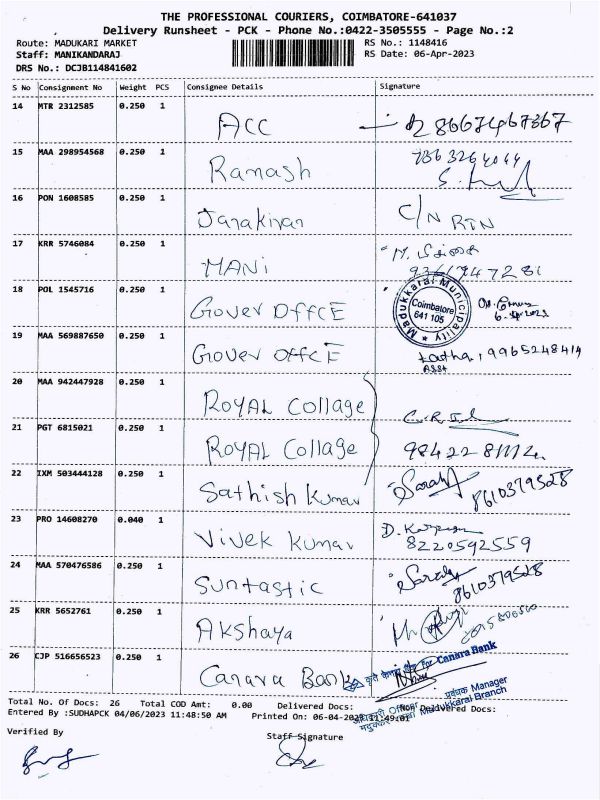 THE PROFESSIONAL COURIERS, COIMBATORE-641037
Delivery Runsheet - PCK - Phone No.:0422-3505555 - Page No.:2
Route: MADUKARI MARKET RS No.: 1148416
Staff: MANIKANDARAJ RS Date: 06-Apr-2023
DRS No.: DCJB114841602
S No Consignment No Weight PCS Consignee Details Signature
14 MTR 2312585 0.250 1 ACC
15 MAA 298954568 0.250 1 Ramash
16 PON 1608585 0.250 1 Janakiran C/N RTN
17 KRR 5746084 0.250 1 MANi
18 POL 1545716 0.250 1 Gover OffCE
Madukkarai Municipality
Coimbatore
641 105
19 MAA 569887650 0.250 1 Gover OffCE 9965248414
ASST
20 MAA 942447928 0.250 1 ROYAL Collage
21 PGT 6815021 0.250 1 ROYAL Collage
22 IXM 503444128 0.250 1 Sathish Kumar 8610379528
23 PRO 14608270 0.040 1 Vivek Kumar 8220592559
24 MAA 570476586 0.250 1 Suntastic 8610379528
25 KRR 5652761 0.250 1 Akshaya
26 CJP 516656523 0.250 1 Canara Bank
For Canara Bank
Manager
Officer
Madukkarai Branch
Total No. Of Docs: 26 Total COD Amt: 0.00 Delivered Docs: Non Delivered Docs:
Entered By :SUDHAPCK 04/06/2023 11:48:50 AM Printed On: 06-04-2023 11:49:01
Verified By Staff Signature